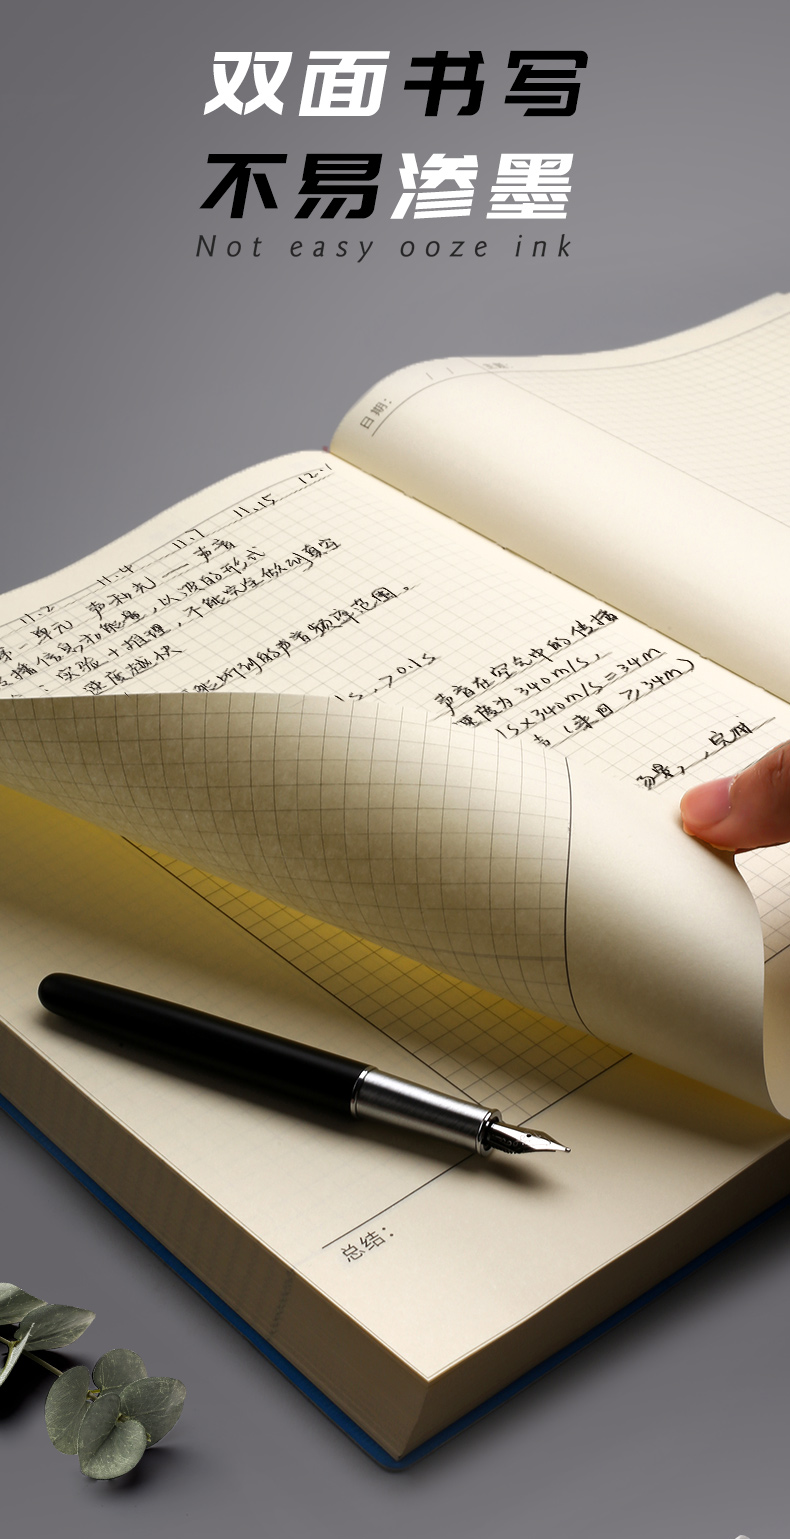 双面书写
不易渗墨
Not easy ooze ink
日期:
11.2 11.4 11.7 11.15 12.1
第一单元 声和光 — 声音
传播信息和能量,以波的形式
:实验+推理,不能完全做到真空
速度越快
所列的声音频率范围。
1s,>0.1s
声音在空气中的传播
速度为340m/s,
1s×340m/s=34m
≥34m)
总结: